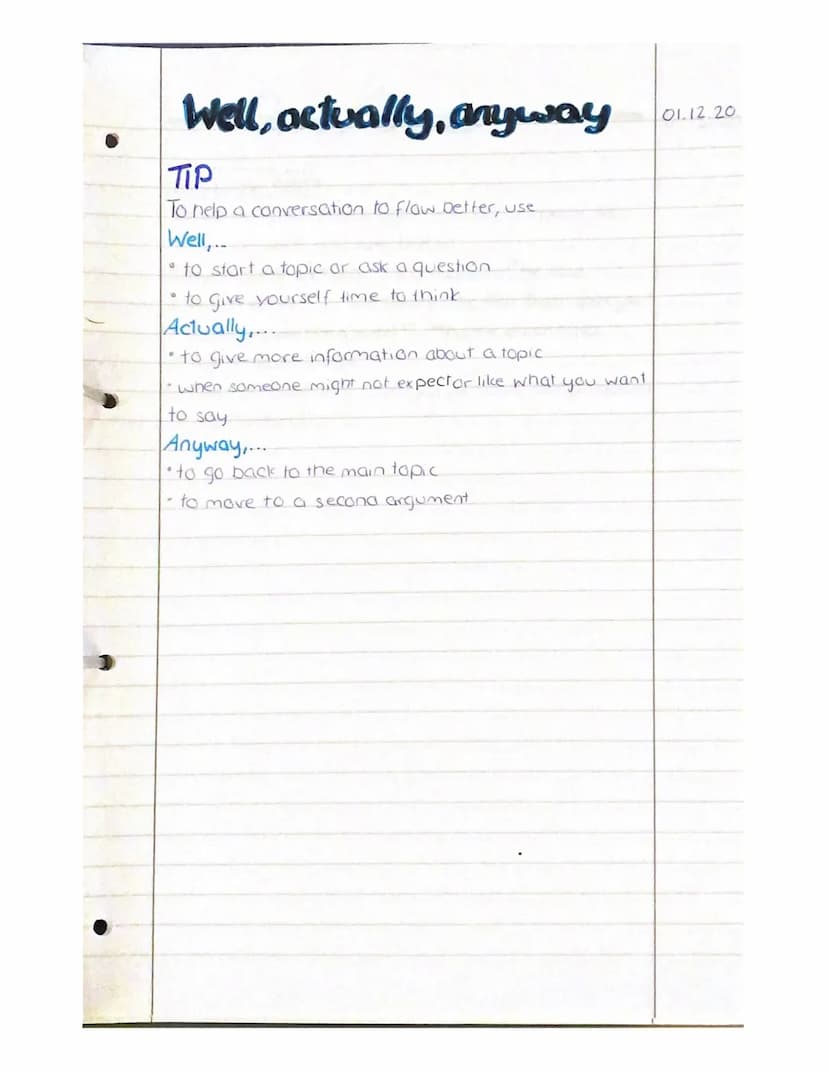 Well, actually, anyway
01.12.20
TIP
To help a conversation to flow better, use
Well,..
• to start a topic or ask a question
• to give yourself time to think
Actually,...
• to give more information about a topic
• when someone might not expect or like what you want
to say
Anyway,...
• to go back to the main topic
• to move to a second argument